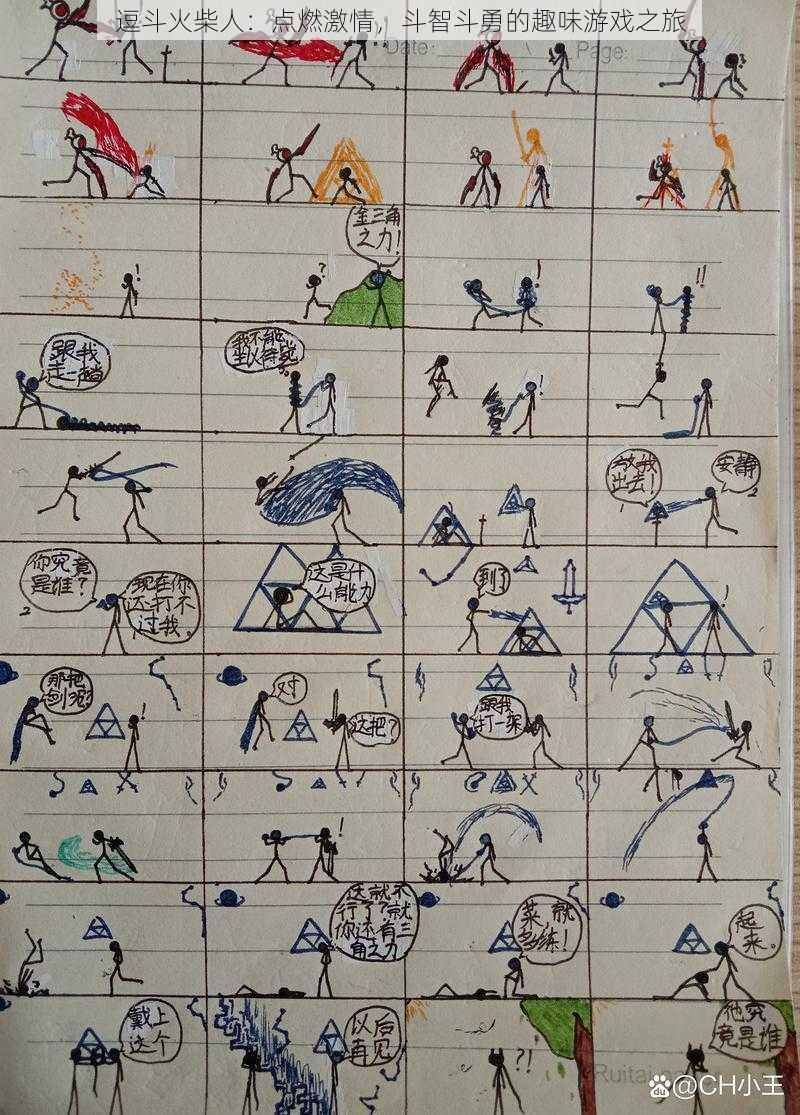 逗斗火柴人：点燃激情，斗智斗勇的趣味游戏之旅
Date:
Page:
金三角
之力！
!
?
!
!!
跟我
走一趟
我不能
坐以待毙。
!
放我
出去！
1
安静
2
你究竟
是谁？
2
现在你
还打不
过我。
这是什
么能力
到了
!
那把
剑呢？
!
对
这把？
跟我
打一架
!
这就不
行了？就
你还有三
角之力
菜，就
多练！
起
来。
戴上
这个
以后
再见
?!
他究
竟是谁
Ruitai
@CH小王